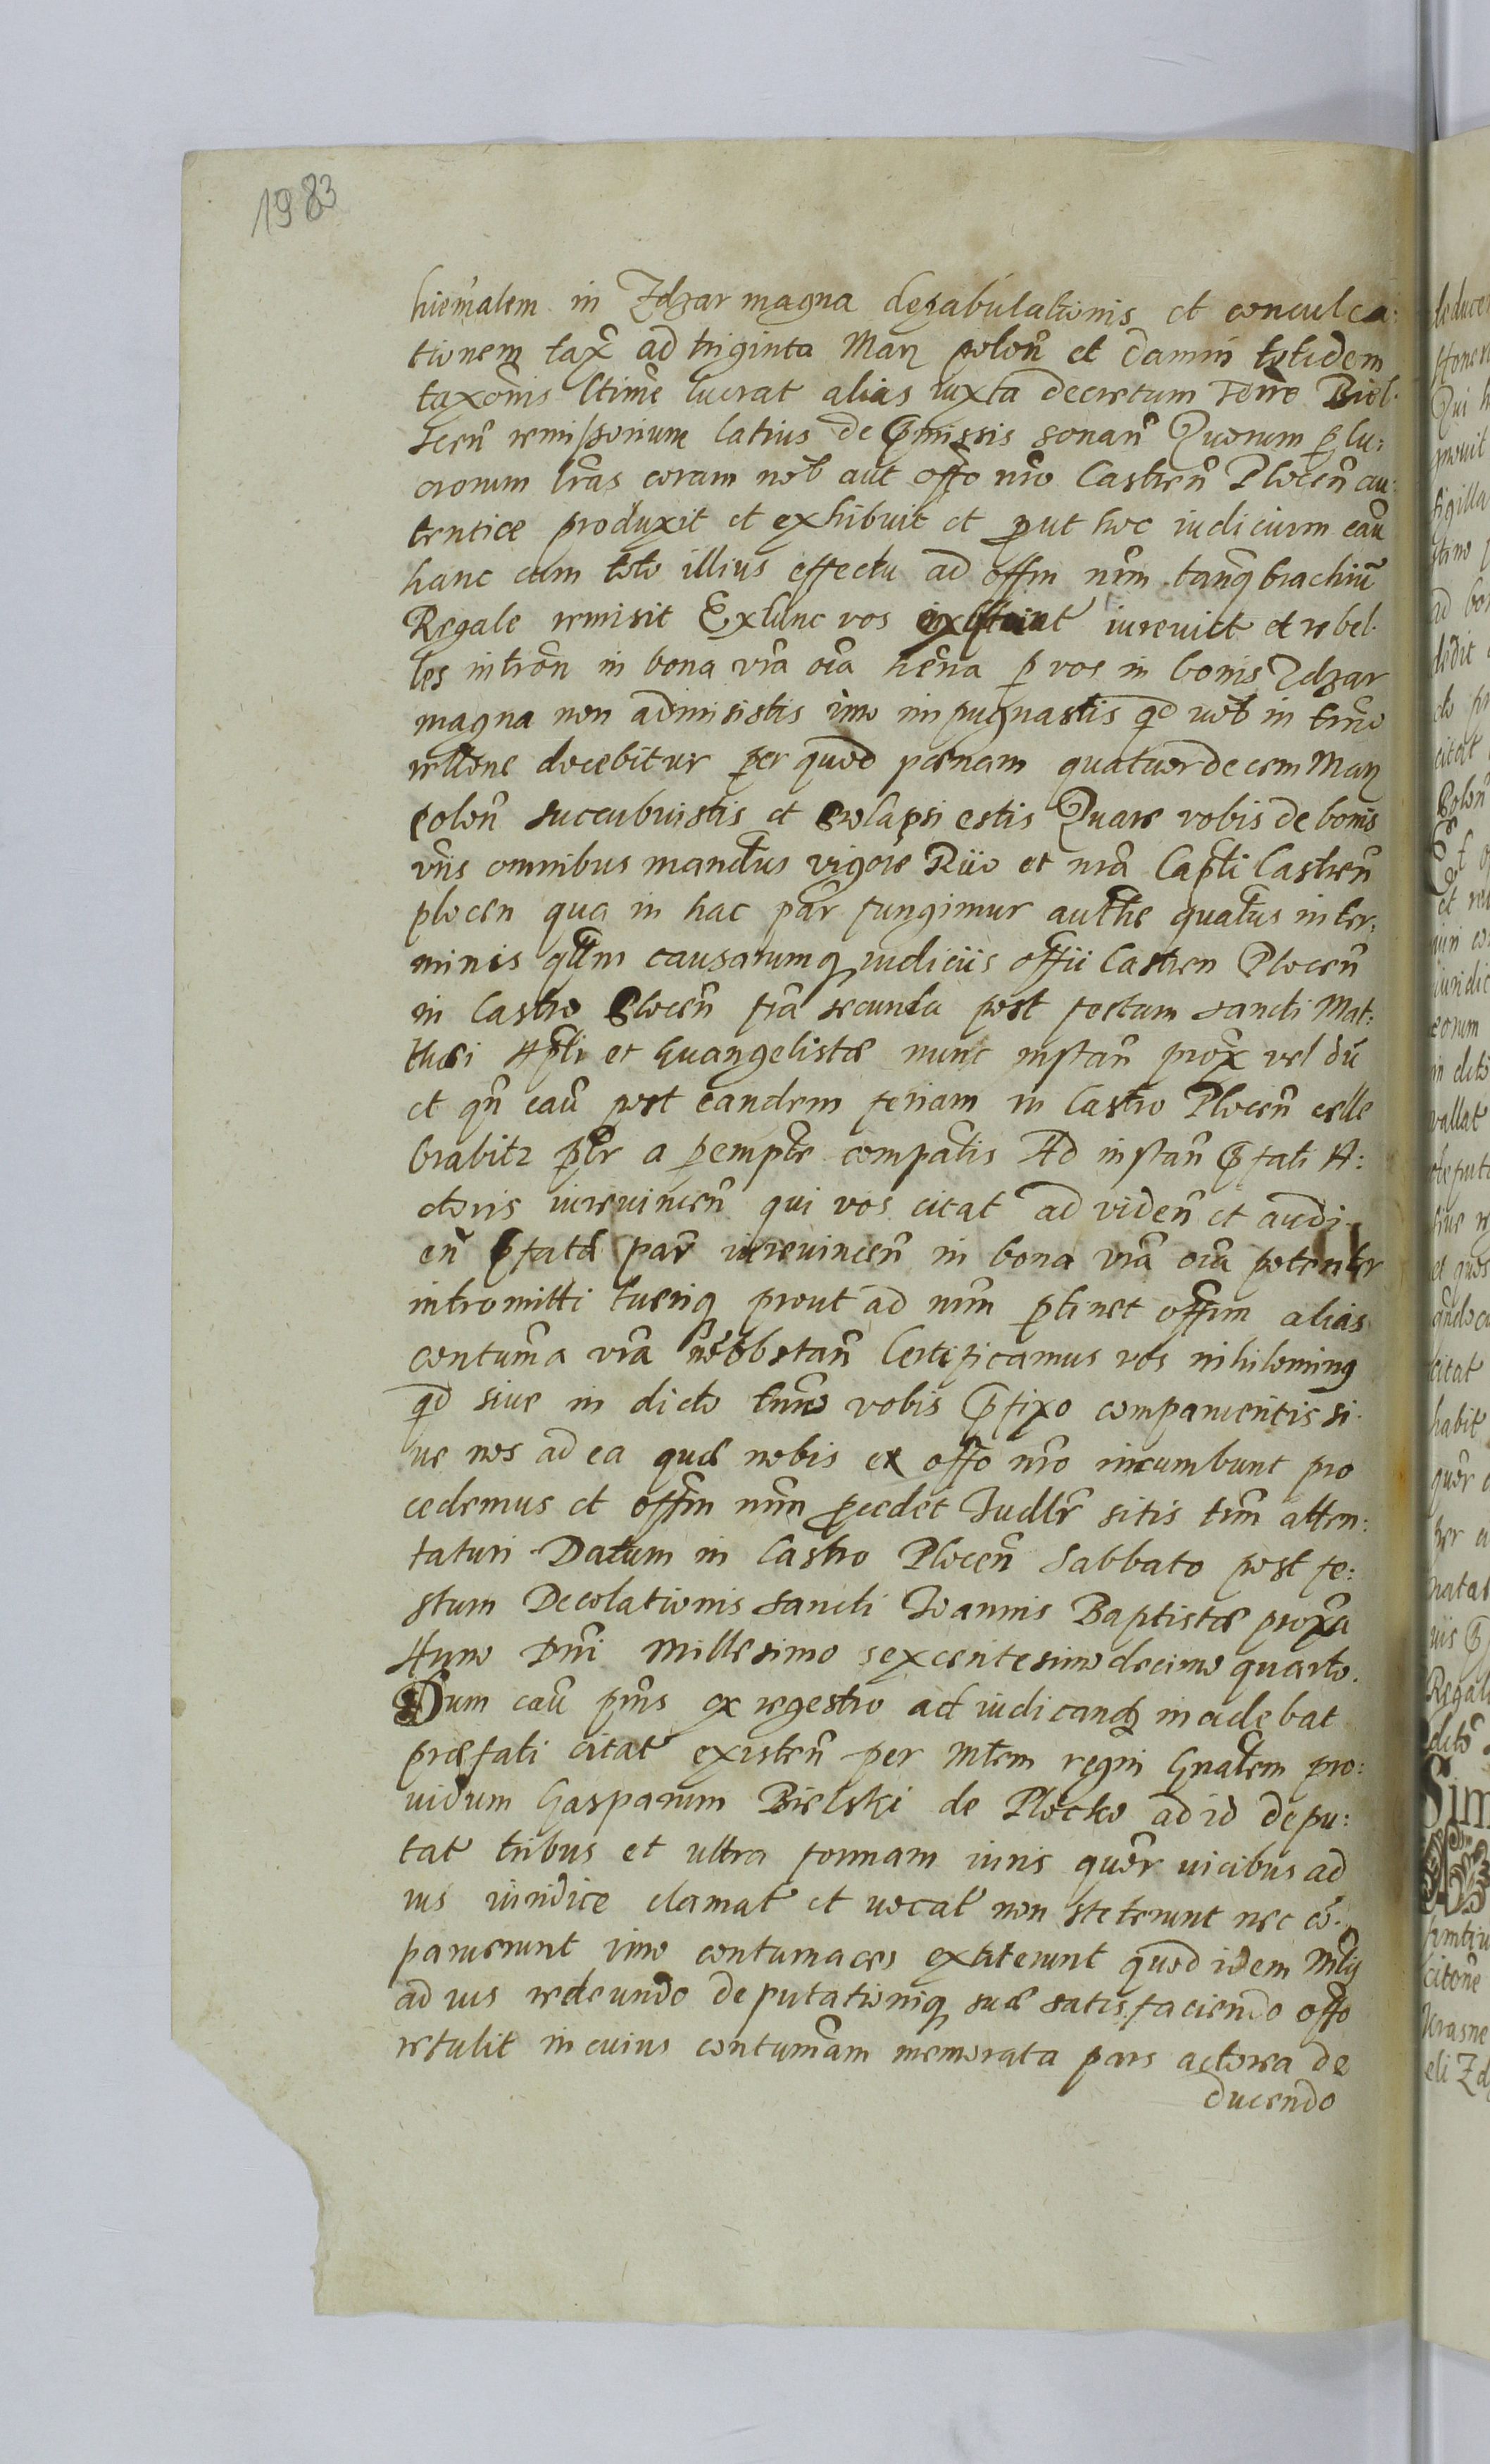 1983
hiemalem in Zdzar magna depabulationis et conculca:
tionem tax̃ ad triginta Marɀ poloñ et damni totidem
taxõnis ltime lucrat alias iuxta decretum Terrẽ Biel:
scen̄ remissorium latius de p̄missis sonan̄ Quorum p̄ lu:
crorum lr̃as coram nob̃ aut offo nr̃o Castren̄ Plocen̄ au:
tentice produxit et exhibuit et prout hoc iudicium cau̅
hanc cum toto illius effectu ad offm nr̃m tanq̃ brachiu̅
Regale remisit Extunc vos iurevict et rebel:
les intron̄ in bona vr̃a oia̅ hẽna p vos in bonis Zdzar
magna non admisistis imo impugnastis qd vob̃ in tmĩo
rllõne docebitur per quod pænam quatuordecem Marɀ
polon̄ succubuistis et relapsi estis Quare vobis de bonis
vr̃is omnibus mandtus vigore Riio et nr̃a Capti Castren̄
plocen qua in hac par̃ fungimur authe quatus in ter:
minis qllm causarumq iudiciis offii Castren Plocen̄
in Castro Plocen̄ fr̃ia secunda post festum sancti Mat:
thæi Aplĩ et Euangelistæ nunc instan̄ prox̃ vel du̅
et qn̄ cau̅ post eandem feriam in Castro Plocen̄ celle
brabitɀ pttr a pempte compatis Ad instan̄ p̄fati A:
ctoris iurevincen̄ qui vos citat ad viden̄ et audi:
en̄ p̄fatæ par̃ iurevincen̄ in bona vr̃a oia̅ potenter
intromitti tueriq prout ad nr̃m ptinet offm alias
contuma̅ vr̃a nõobstan̄ Certificamus vos nihilominq
qd sive in dicto tmĩo vobis p̄fixo comparueritis si:
ve nos ad ea quæ nobis ex offo nr̃o incumbunt pro
cedemus et offm nr̃m pcedet Iudlr̃ sitis trm̃ atten:
taturi Datum in Castro Plocen̄ Sabbato post fe:
stum Decolationis sancti Ioannis Baptistæ prox̃a
Anno Dn̄i Millesimo sexcentesimo decimo quarto.
Dum cau̅ pñs ex regestro ad iudicandɀ incidebat
præfati citat existen̄ per Mtem regni Gnalem pro:
uidum Gasparum Bielski de Plocko ad id depu:
tat tribus et ultra formam iuris quor̃ uicibus ad
ius iuridice clamat et uocat non steterunt nec cõ:
paruerunt imo contumaces extiterunt quod idem Mtis
ad ius redeundo deputationiq suæ satisfaciendo offo
retulit in cuius contumãm memorata pars actorea de
ducendo